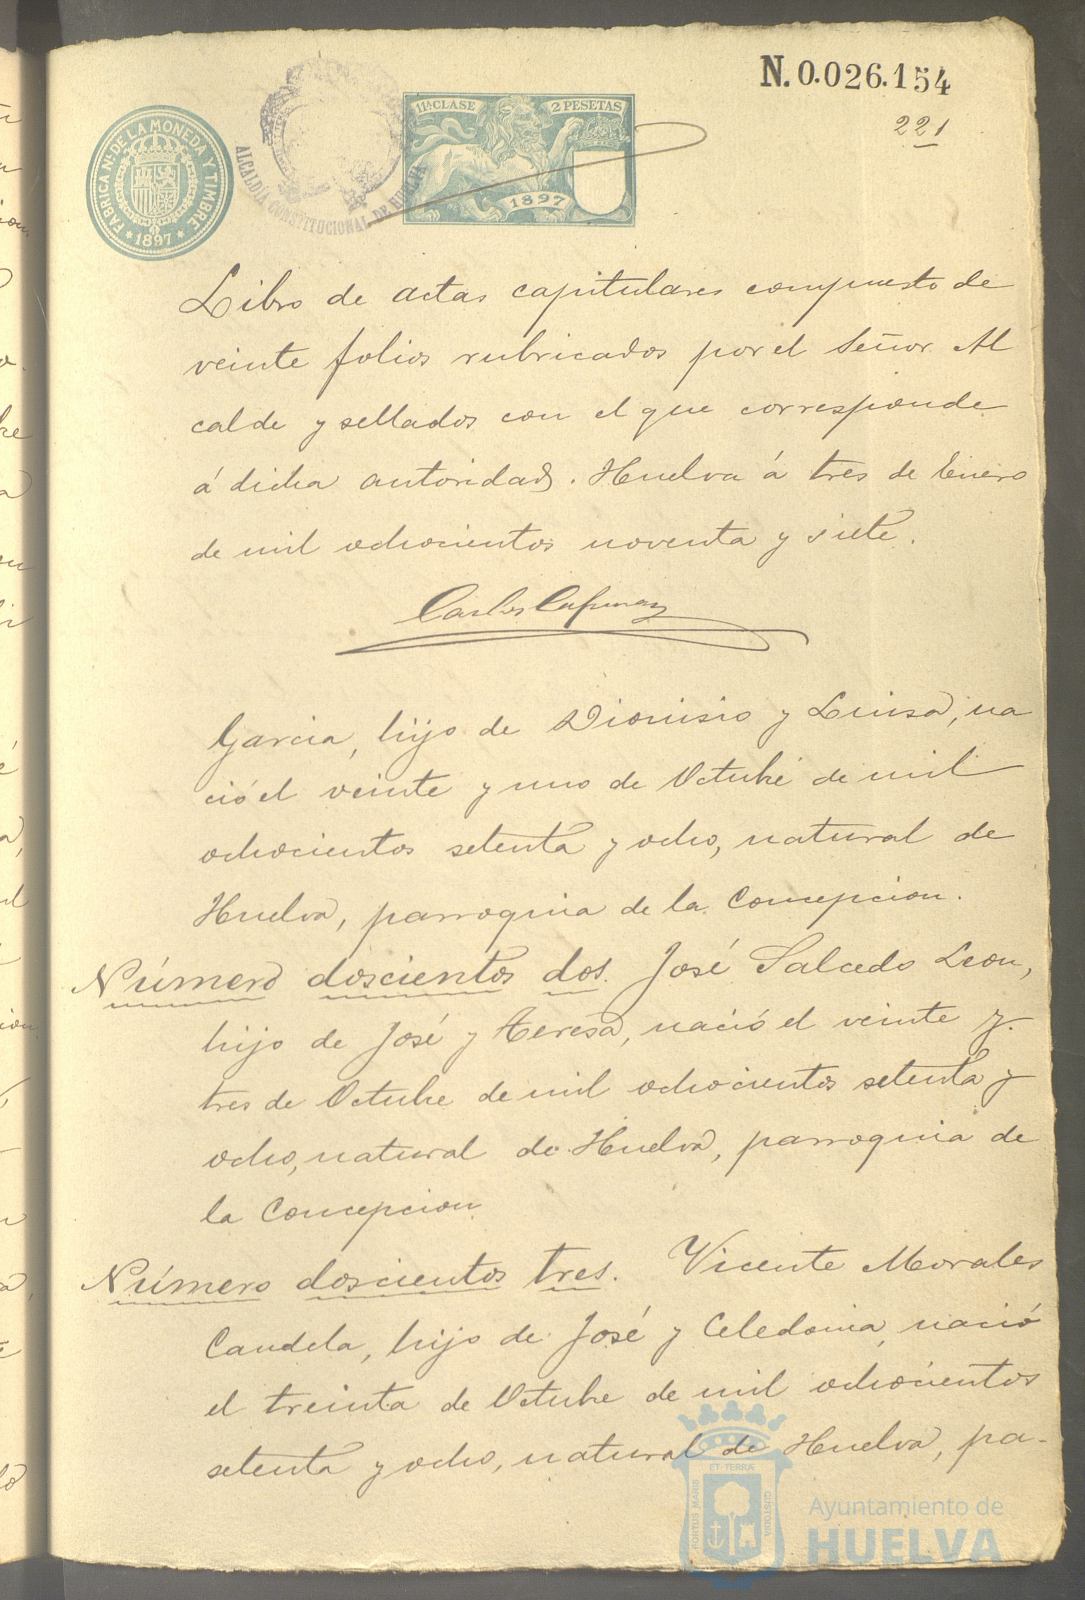 N. 0.026.154
221
FÁBRICA NL. DE LA MONEDA Y TIMBRE
* 1897 *
ALCALDÍA CONSTITUCIONAL DE HUELVA
11ª CLASE
2 PESETAS
1897
Libro de actas capitulares compuesto de
veinte folios rubricados por el Señor Al
calde y sellados con el que corresponde
á dicha autoridad. Huelva á tres de Enero
de mil ochocientos noventa y siete.
Carlos
Garcia, hijo de Dionisio y Luisa, na
ció el veinte y uno de Octubre de mil
ochocientos setenta y ocho, natural de
Huelva, parroquia de la Concepcion.
Número doscientos dos. José Salcedo Leon,
hijo de José y Teresa, nació el veinte y
tres de Octubre de mil ochocientos setenta y
ocho, natural de Huelva, parroquia de
la Concepcion
Número doscientos tres. Vicente Morales
Candela, hijo de José y Celedonia, nació
el treinta de Octubre de mil ochocientos
setenta y ocho, natural de Huelva, pa-
ET TERRÆ
PORTUS MARIS
CUSTODIA
Ayuntamiento de
HUELVA